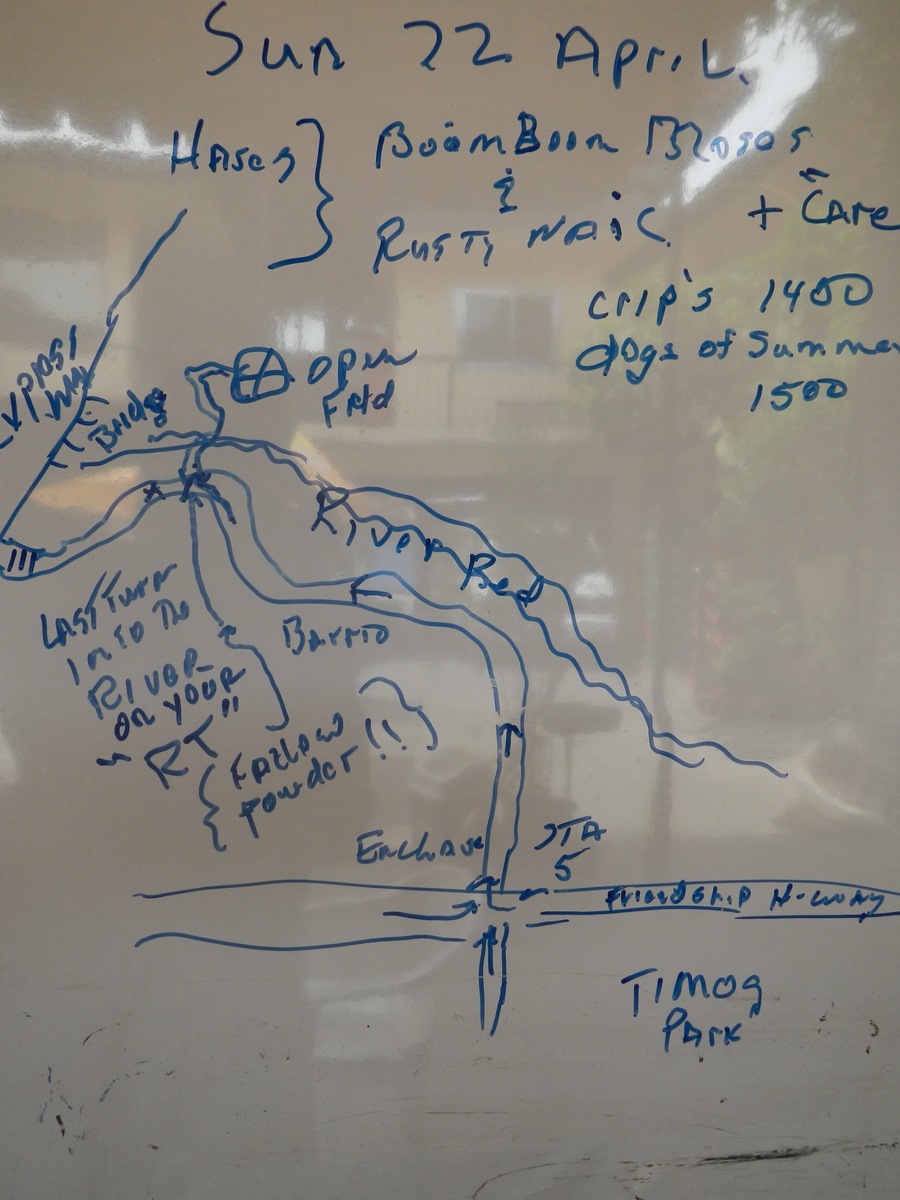 Sun 22 April
Hases } BoomBoom
&
Rusty Naic + Care
Crip's 1400
dogs of Summer
1500
Open
Field
Bridge
River Bed
Last Turn
into The
River
on your
"RT"
Barrio
Follow
powder !!
Enclave
5
Friendship H-way
Timog
Park